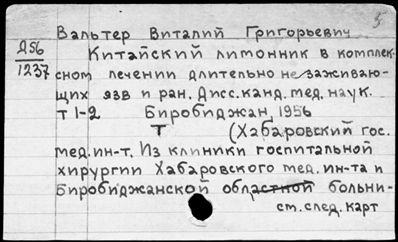 Вальтер Виталий Григорьевич
Д56
1237
Китайский лимонник в комплек-
сном лечении длительно не заживаю-
щих язв и ран. Дисс. канд. мед. наук.
т 1-2 Биробиджан 1956
Т (Хабаровский гос.
мед. ин-т. Из клиники госпитальной
хирургии Хабаровского мед. ин-та и
Биробиджанской областной больни-
см. след. карт